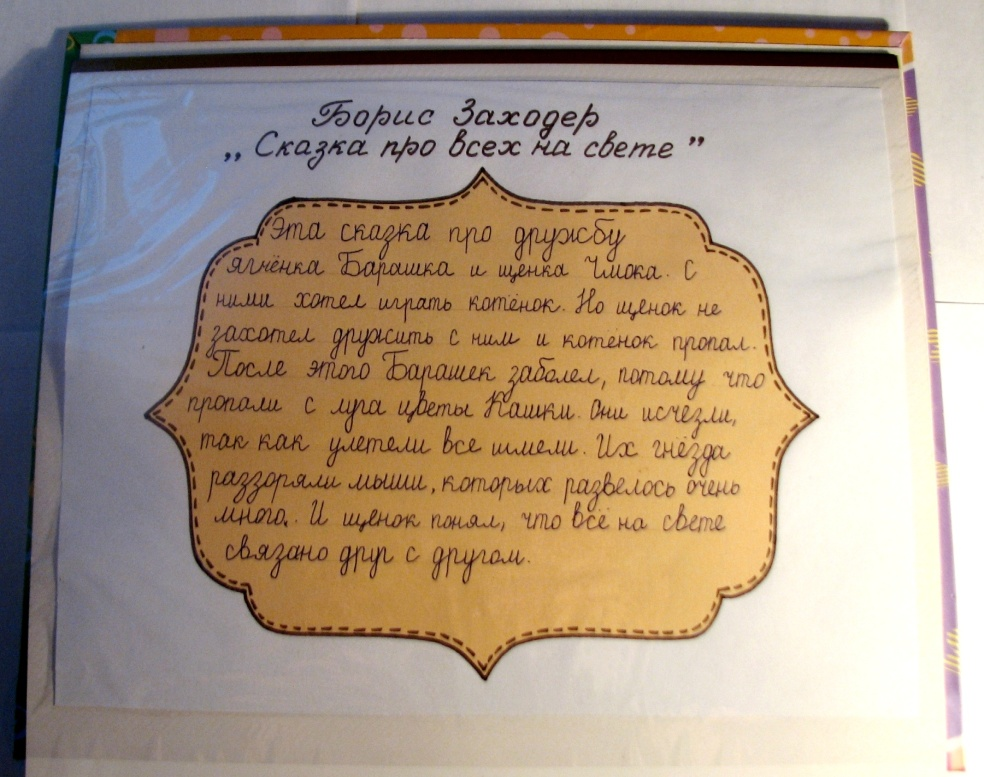 Борис Заходер
„Сказка про всех на свете”
Эта сказка про дружбу
ягнёнка Барашка и щенка Чмока. С
ними хотел играть котёнок. Но щенок не
захотел дружить с ним и котёнок пропал.
После этого Барашек заболел, потому что
пропали с луга цветы Кашки. Они исчезли,
так как улетели все шмели. Их гнёзда
раззоряли мыши, которых развелось очень
много. И щенок понял, что всё на свете
связано друг с другом.